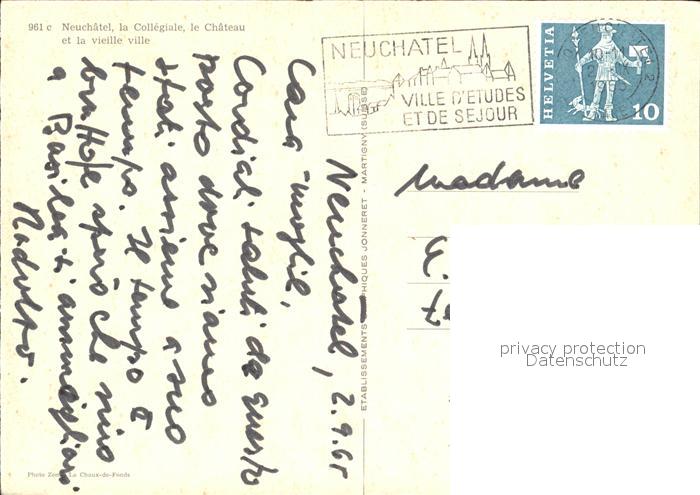 961 c Neuchâtel, la Collégiale, le Château
et la vieille ville
NEUCHATEL
VILLE D'ETUDES
ET DE SEJOUR
HELVETIA
10
Madame
privacy protection
Datenschutz
Neuchâtel, 2.9.65
Cara moglie,
Cordiali saluti da questo
posto dove siamo
stati assieme a suo
tempo. Il tempo è
brutto e spero che
a Basilea ti
ETABLISSEMENTS PHIQUES JONNERET - MARTIGNY (SUISSE)
Photo La Chaux-de-Fonds